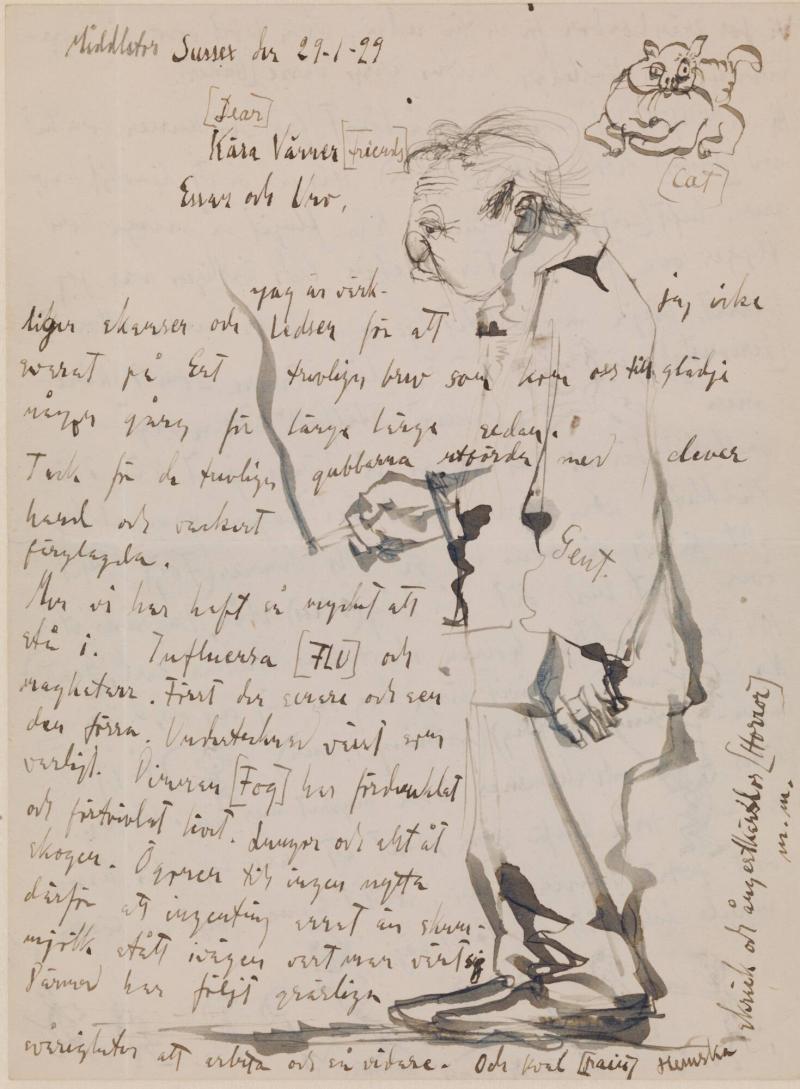 Middleton Sussex den 29-1-29
[Dear]
Kära Vänner [friends]
[Cat]
Einar och Uno,
jag är verk-
ligen skamsen och ledsen för att jag icke
svarat på Ert trevliga brev som kom oss till glädje
någon gång för länge länge sedan.
Tack för de trevliga gubbarna utförda med clever
hand och vackert
färglagda.
Gent.
Men vi har haft så mycket att
stå i. Influensa [FLU] och
magkatarr. Först den senare och sen
den förra. Undertecknad värst som
vanligt. Dimman [Fog] har fördunklat
och förtvivlat livet. Lungor och allt åt
skogen. Ögonen till ingen nytta
därför att ingenting annat än skum-
mjölk stått i vägen vart man vänt sig
Därmed har följt gräsliga
svårigheter att arbeta och så vidare. Och kval [Pain] hemska
skrik och [Horror]
m.m.